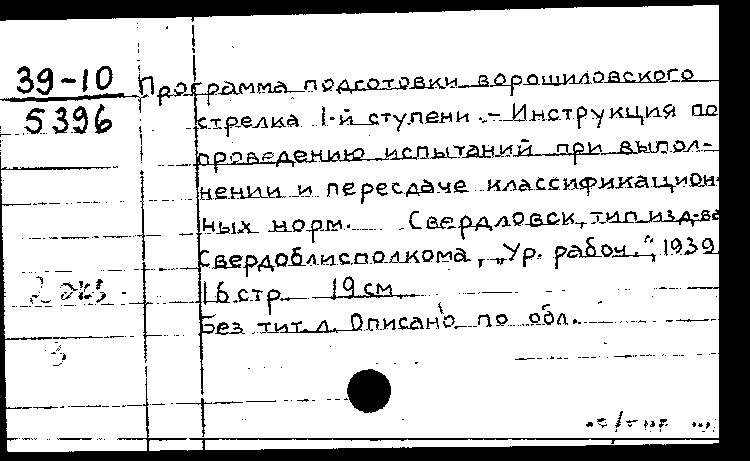 39-10
5396
Программа подготовки ворошиловского
стрелка 1-й ступени. - Инструкция по
проведению испытаний при выпол-
нении и пересдаче классификацион-
ных норм. Свердловск, тип. изд-ва
Свердоблисполкома, "Ур. рабоч.", 1939
16 стр. 19 см.
2 экз.
Без тит. л. Описано по обл.
3